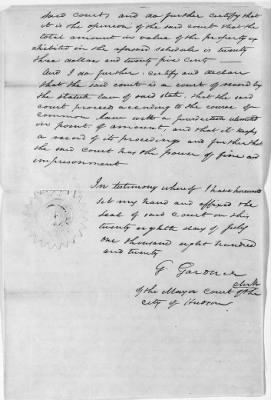 said court, and do further certify that
it is the opinion of the said court that the
total amount in value of the property ex
hibited in the aforesaid schedule is twenty
three dollars and twenty five cents —
And I do further certify and declare
that the said court is a court of record by
the statute law of said state, that the said
court proceed according to the course of
common law with a jurisdiction unlimited
in point of amount, and that it keeps
a record of its proceedings and further that
the said court has the power of fine and
imprisonment
In testimony whereof I have hereunto
set my hand and affixed the
seal of said Court on this
twenty eighth day of July
one thousand eight hundred
and twenty
G Gardner
clerk
of the Mayor Court of the
city of Hudson